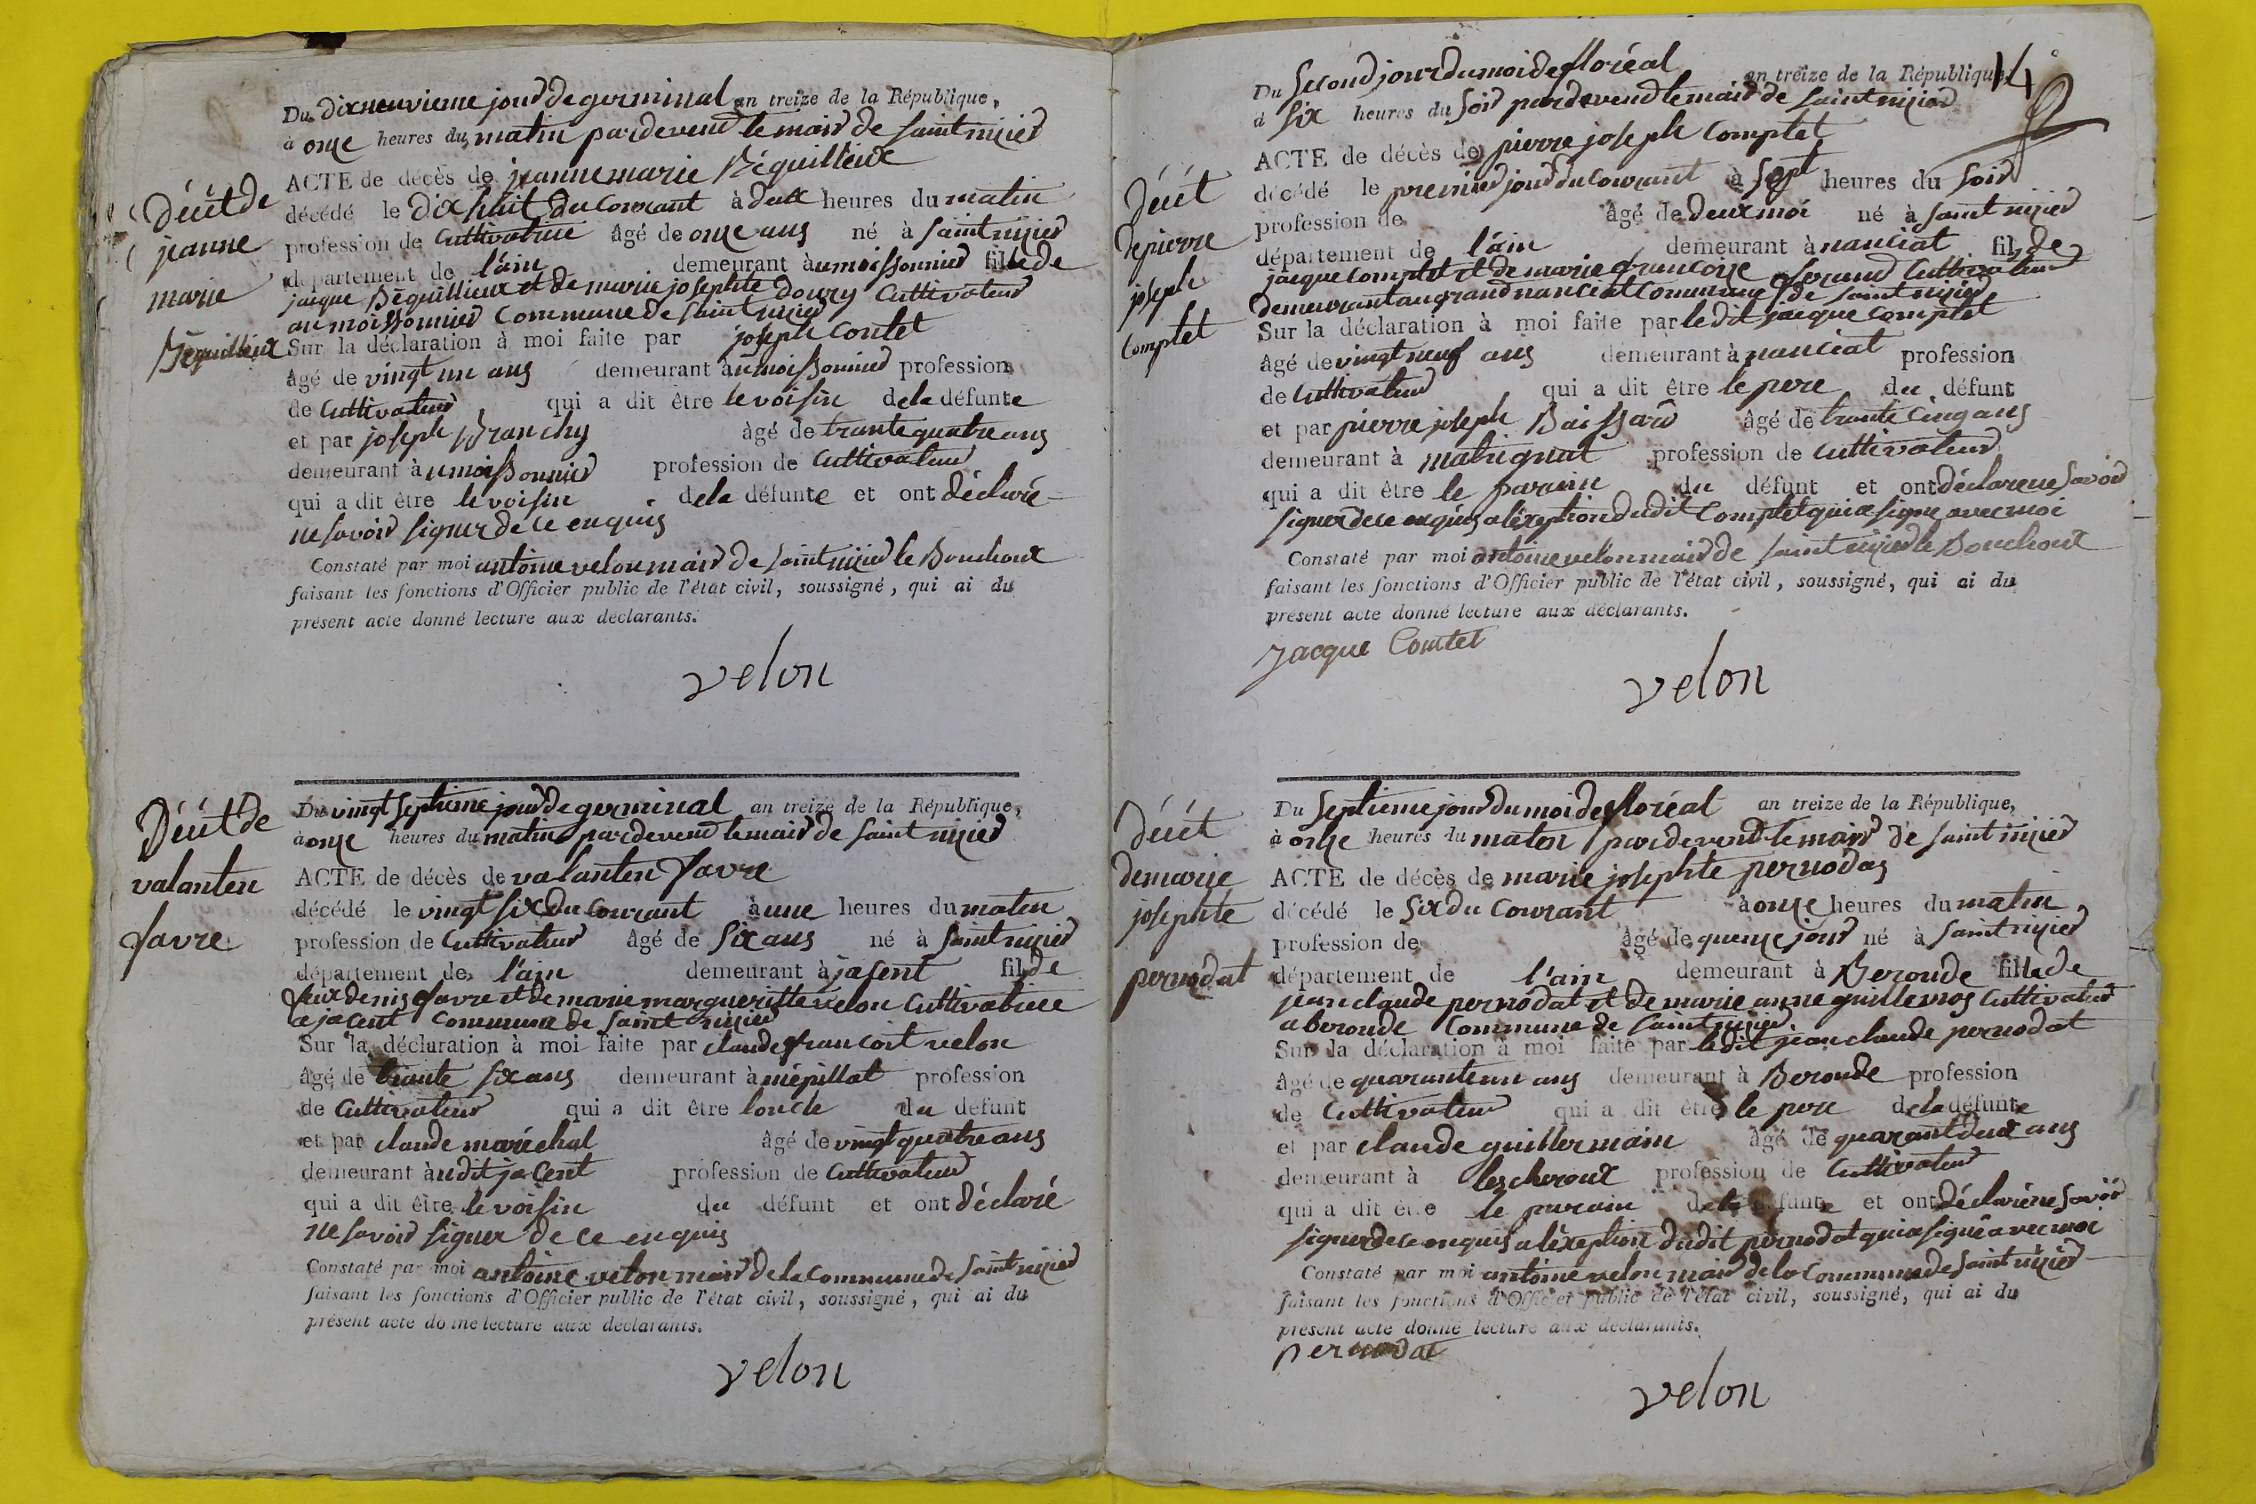 Du dixneuvieme jour de germinal an treize de la République,
à onze heures du matin pardevend le maird de saint nizier
ACTE de décès de jeanne marie Béquillieux
décédé le dix huit du courant à deux heures du matin
profession de cultivatrice âgé de onze ans né à saint nizier
département de l'ain demeurant à umoissonnier fille de
jacque Béquillieux et de marie josephte doury cultivateur
au moissonnier commune de saint nizier
Sur la déclaration à moi faite par joseph contet
âgé de vingt un ans demeurant à umoissonnier profession
de cultivateur qui a dit être le voisin dela défunte
et par joseph Branchy âgé de trante quatre ans
demeurant à umoissonnier profession de cultivateur
qui a dit être le voisin dela défunte et ont déclaré
ne savoir signer de ce enquis
Constaté par moi antoine velon maird de saint nizier le Bouchoux
faisant les fonctions d'Officier public de l'état civil, soussigné, qui ai du
présent acte donné lecture aux déclarants.
velon
Décét de
jeanne
marie
Béquillieux
Du vingt septieme jour de germinal an treize de la République,
à onze heures du matin pardevend le maird de saint nizier
ACTE de décès de valanten favre
décédé le vingt six du courant à une heures du maten
profession de cultivateur âgé de six ans né à saint nizier
département de l'ain demeurant à jasent fil de
feux denis favre et de marie margueritte velon cultivatrice
a jacent commune de saint nizier
Sur la déclaration à moi faite par claude francoit velon
âgé de trante six ans demeurant à mépillat profession
de cultivateur qui a dit être loncle du défunt
et par claude maréchal âgé de vingt quatre ans
demeurant à udit jacent profession de cultivateur
qui a dit être le voisin du défunt et ont déclaré
ne savoir signer de ce enquis
Constaté par moi antoine velon maird de la commune de saint nizier
faisant les fonctions d'Officier public de l'état civil, soussigné, qui ai du
présent acte donné lecture aux déclarants.
velon
Décét de
valanten
favre
14
Du second jour du moi de floréal an treize de la République
à six heures du soir pardevend le maird de saint nizier
ACTE de décès de pierre joseph comptet
décédé le premier jour du courant à sept heures du soir
profession de âgé de deux moi né à saint nizier
département de l'ain demeurant à nanciat fil de
jacque comptet et de marie francoise ferand cultivateur
demeurant au grand nanciat commune de saint nizier
Sur la déclaration à moi faite par le dit jacque comptet
âgé de vingt neuf ans demeurant à nanciat profession
de cultivateur qui a dit être le pere du défunt
et par pierre joseph Baissard âgé de trante cinq ans
demeurant à matrignat profession de cultivateur
qui a dit être le parain du défunt et ont déclare ne savoir
signer de ce enquis a léxeption dudit comptet qui a signe avec moi
Constaté par moi antoine velon maird de saint nizier le Bouchoux
faisant les fonctions d'Officier public de l'état civil, soussigné, qui ai du
présent acte donné lecture aux déclarants.
jacque Comtet
velon
décét
de pierre
joseph
comptet
Du septieme jour du moi de floréal an treize de la République,
à onze heures du maten pardevend le maird de saint nizier
ACTE de décès de marie josephte pernodas
décédé le six du courant à onze heures du matin
profession de âgé de quenze jour né à saint nizier
département de l'ain demeurant à Beronde fille de
jean claude pernodat et de marie anne guillemos cultivateur
a beronde commune de saint nizier
Sur la déclaration à moi faite par le dit jean claude pernodat
âgé de quarante un ans demeurant à Beronde profession
de cultivateur qui a dit être le pere dela défunte
et par claude guillermain âgé de quarant deux ans
demeurant à lescheroux profession de cultivateur
qui a dit être le parain dela défunte et ont déclaré ne savoir
signer de ce enquis a léxeption dudit pernodat qui a signé avec moi
Constaté par moi antoine velon maird de la commune de saint nizier
faisant les fonctions d'Officier public de l'état civil, soussigné, qui ai du
présent acte donné lecture aux déclarants.
pernodat
velon
décét
de marie
josephte
pernodat